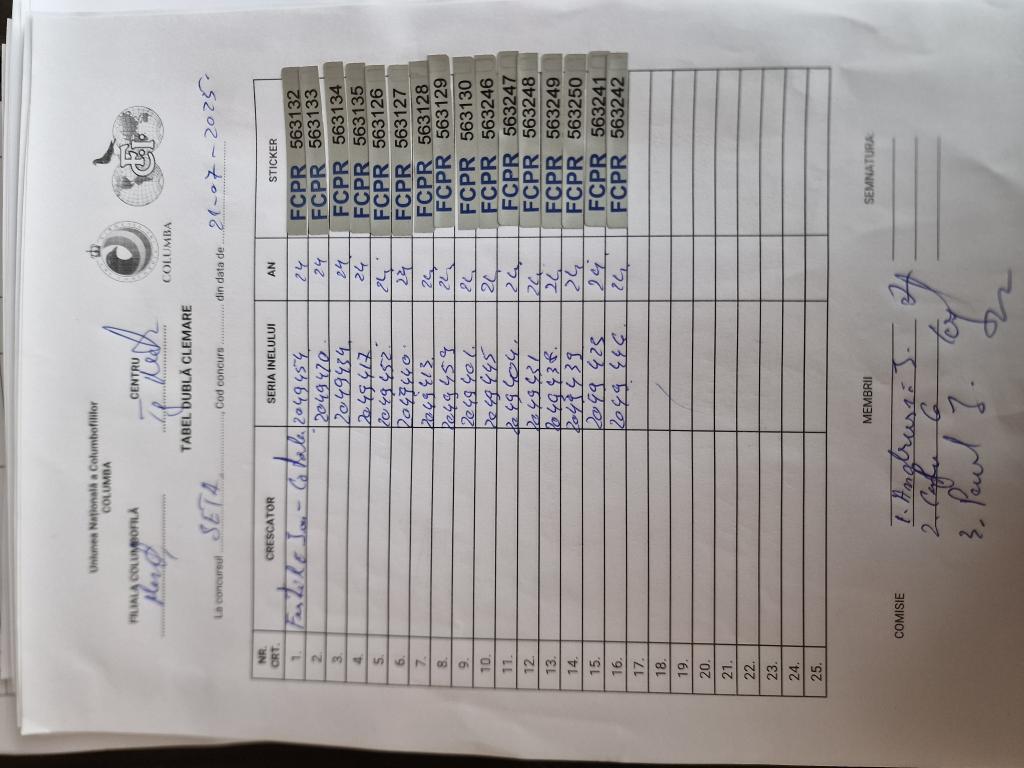 Uniunea Națională a Columbofililor
COLUMBA
FILIALA COLUMBOFILĂ CENTRU
COLUMBA FCI
TABEL DUBLĂ CLEMARE
La concursul SETA, Cod concurs din data de 21-07-2025
NR. CRT. CRESCATOR SERIA INELULUI AN STICKER
1. 2049454 24 FCPR 563132
2. 2049470 24 FCPR 563133
3. 2049484 24 FCPR 563134
4. 2049417 24 FCPR 563135
5. 2049452 24 FCPR 563126
6. 2049440 24 FCPR 563127
7. 2049413 24 FCPR 563128
8. 2049459 24 FCPR 563129
9. 2049401 24 FCPR 563130
10. 2049445 24 FCPR 563246
11. 2049404 24 FCPR 563247
12. 2049431 24 FCPR 563248
13. 24 FCPR 563249
14. 2049439 24 FCPR 563250
15. 2049423 24 FCPR 563241
16. 2049446 24 FCPR 563242
17.
18.
19.
20.
21.
22.
23.
24.
25.
COMISIE MEMBRII SEMNATURA:
1.
2.
3. Paul J.